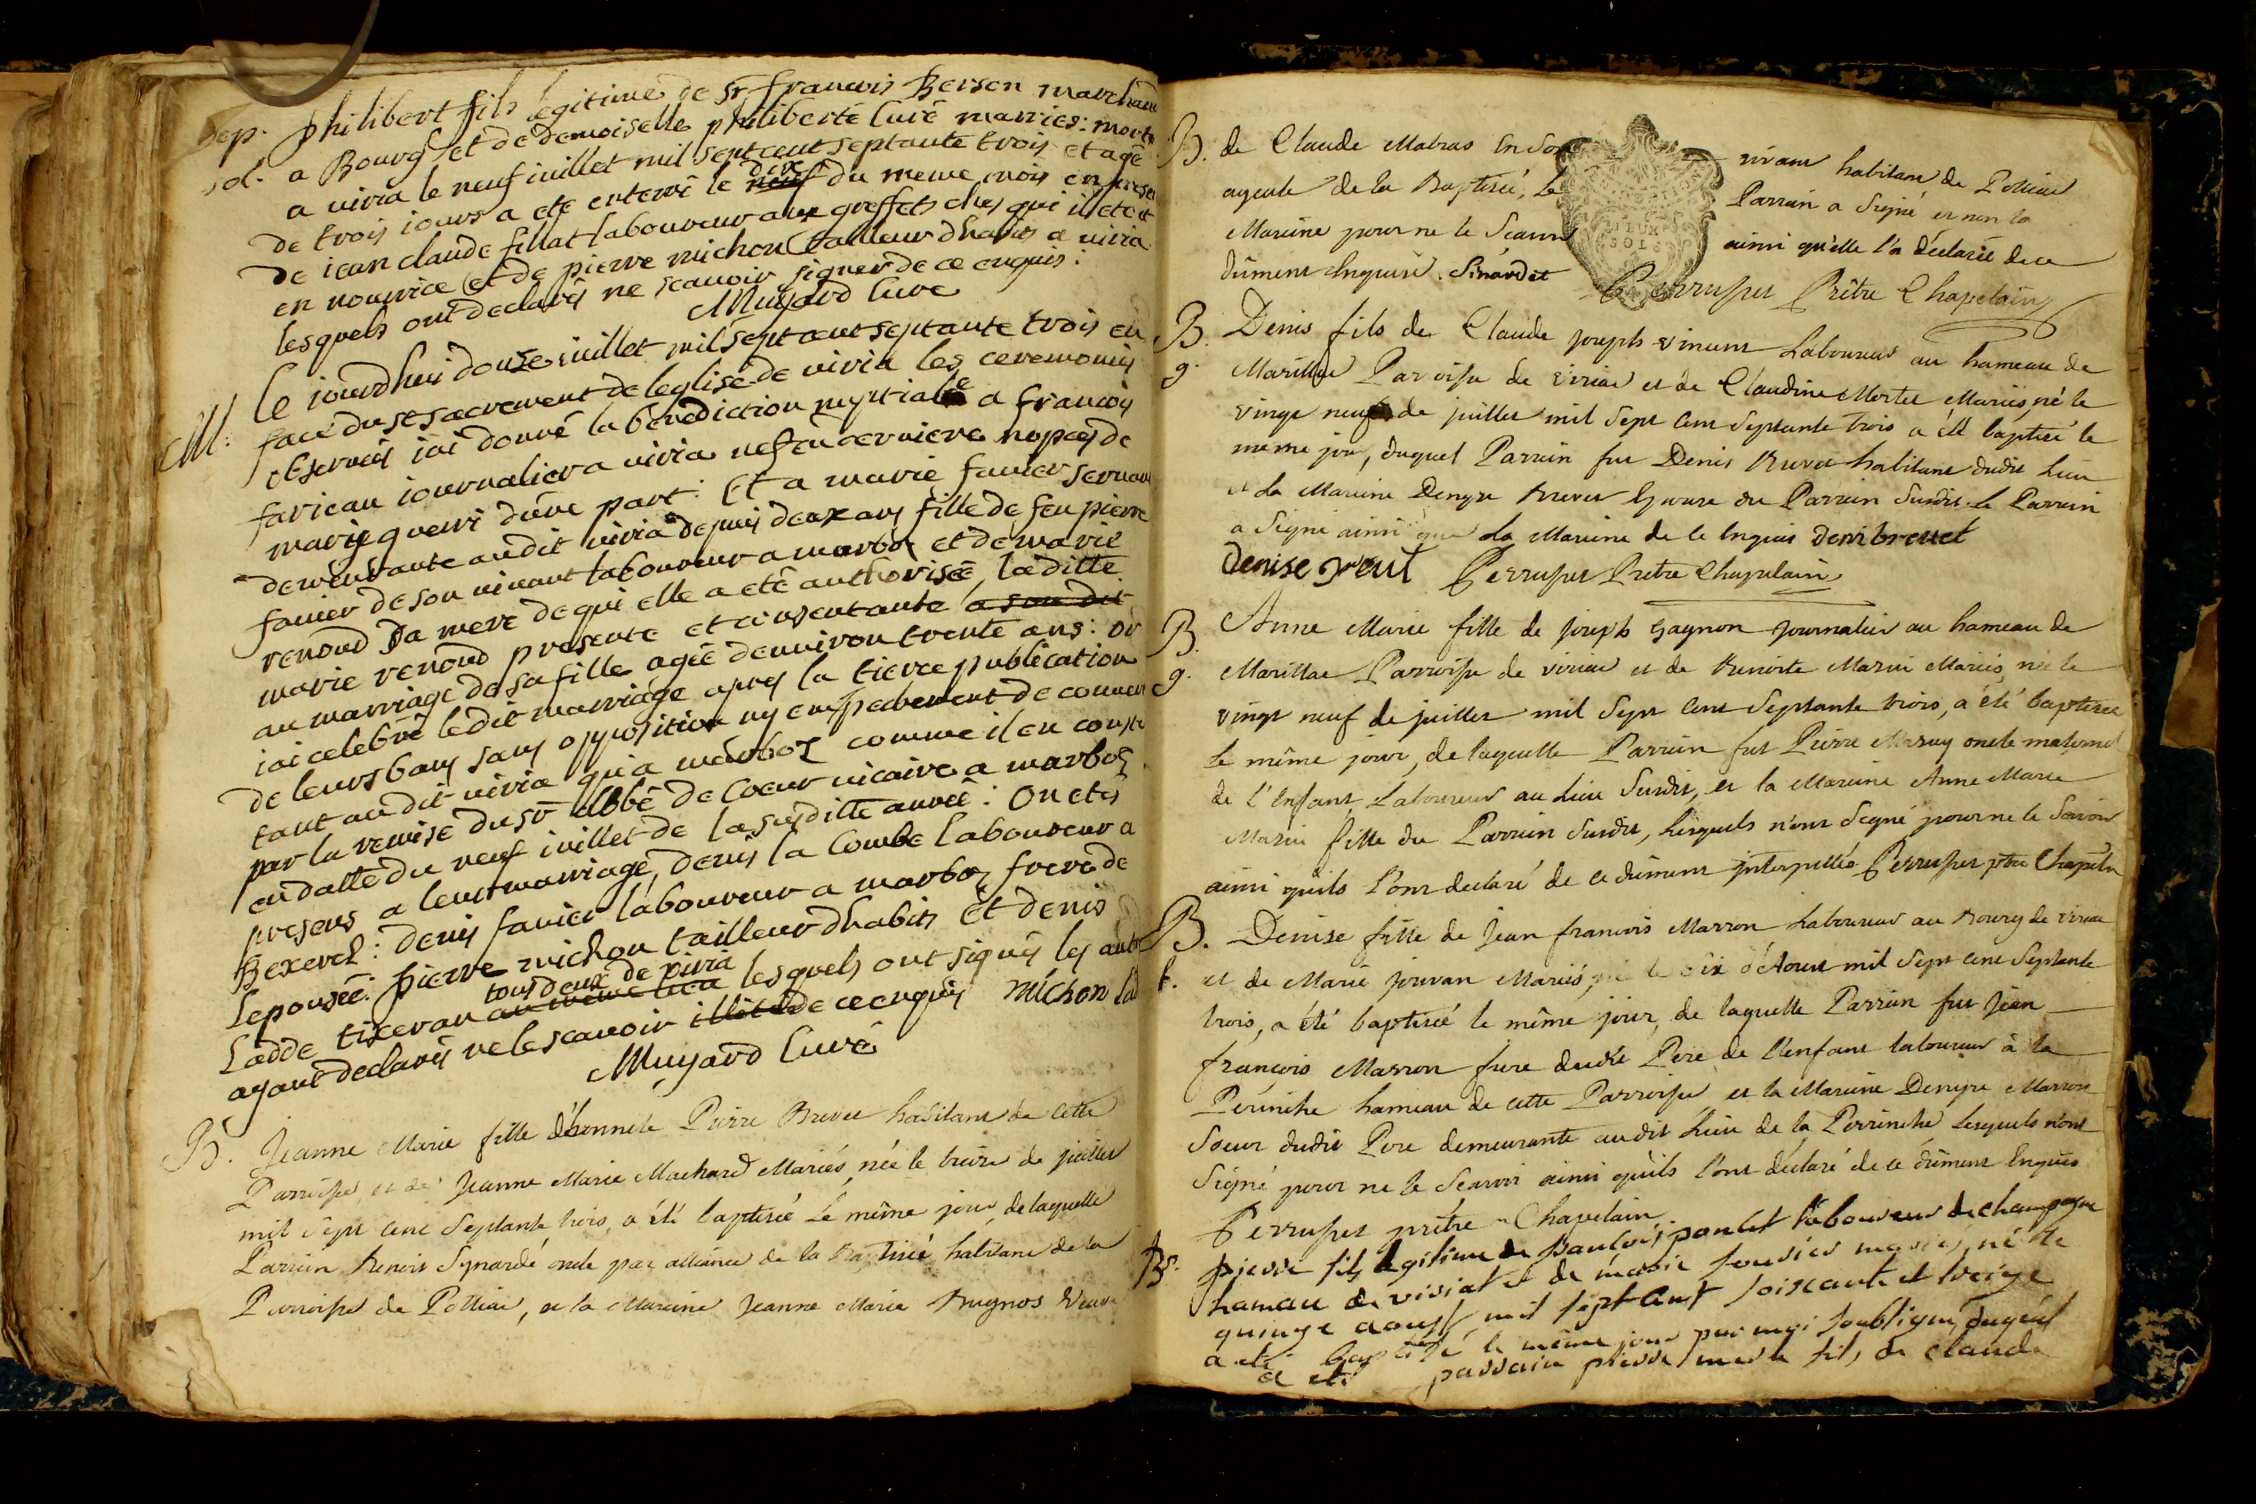 Sep. philibert fils legitime de sr francois Berson marchand
sol. a Bourg et de demoiselle philiberte Curé mariés: mort
a viria le neuf iuillet mil sept cent septante trois et agé
de trois iours a eté enterré le dix neuf du meme mois en presen
de iean claude fillat laboureur aux greffets ches qui il etoit
en nourrice et de pierre michon tailleur dhabits a viria
lesquels ont declarés ne scauoir signer de ce enquis:
Muyard Curé
M: Le iourdhui douze iuillet mil sept cent septante trois en
face du st sacrement de leglise de viria les ceremonies
obserués iai donné la benediction nuptiale a francois
farieau iournalier a viria uef en derniere nopces de
marie guerri dûne part: Et a marie fauier seruan
demeurante audit viria depuis deux ans fille de feu pierre
fauier de son viuant laboureur a marboz et de marie
renoud sa mere de qui elle a eté authorisée, la ditte
marie renoud presente et consentante a son dit
au marriage de sa fille agée denuiron trente ans: or
iai celebré le dit marriage apres la tierce publication
de leurs bans sans opposition ny empechement de connu
tant au dit viria qu'a marboz comme il en conste
par la remise du sr abbé de Coeur uicaire a marboz
en datte du neuf iuillet de la susditte année: On etes
presens a leur marriage, denis la Combe laboureur a
Bexerel: denis fauier laboureur a marboz frere de
lepousée: pierre michon tailleur dhabits Et denis
tous deux de viria
Ladde tixeran au meme lieu lesquels ont signés les autre
ayant declarés ne le scauoir illiteré de ce enquis michon Lad
Muyard Curé
B. Jeanne Marie fille d'honnete Pierre Brevet habitant de cette
Parroisse, et de Jeanne Marie Machard Mariés, née le treize de juillet
mil sept cent septante trois, a été baptisée le même jour, de laquelle
Parrain Benoit Synardé oncle par alliance de la Baptisée habitant de la
Parroisse de Polliat, et la Marraine Jeanne Marie Bugnos Veuve
B. de Claude Matras en son vivant habitant de Polliat
ayeule de la Baptisée, Le Parrain a Signé et non la
Maraine pour ne le Scavoir ainsi qu'elle l'a déclaré de ce
dûment Enquise. Sinardet Perruset Prêtre Chapelain
B. Denis fils de Claude joseph vincent Laboureur au hameau de
g. Marillat Parroisse de viriat et de Claudine Mortet Mariés, né le
vingt neuf de juillet mil sept cent septante trois a été baptisé le
meme jour, duquel Parrain fut Denis Brevet habitant dudit Lieu
et la Maraine Denyse Brevet Epouse du Parrain Susdit. le Parrain
a Signé ainsi que la Maraine de ce Enquis Deni brevet
Denise Perruset Pretre Chapelain
B. Anne Marie fille de joseph Gagnon journalier au hameau de
g. Marillat Parroisse de viriat et de Benoite Marin Mariés, née le
vingt neuf de juillet mil sept cent septante trois, a été baptisée
le même jour, de laquelle Parrain fut Pierre oncle maternel
de l'Enfant Laboureur au Lieu Susdit, et la Maraine Anne Marie
Marin fille du Parrain Susdit, Lesquels n'ont Signé pour ne le Savoir
ainsi quils l'ont declaré de ce dûment interpellés Perruset ptre Chapeln
B. Denise fille de Jean francois Marron Laboureur au Bourg de viriat
f. et de Marie jouvan Mariés, né le Six d'Aoust mil sept cent septante
trois, a été baptisée le même jour, de laquelle Parrain fut Jean
françois Marron frere dudit Pere de l'enfant laboureur à la
Perinche hameau de cette Parroisse et la Maraine Denyse Marron
Soeur dudit Pere demeurante audit Lieu de la Perrinche Lesquels n'ont
Signé pour ne le Scavoir ainsi quils l'ont déclaré de ce dûment Enquis
Perruset prêtre Chapelain
B. pierre fils legitime de ponlet laboureur de champagne
hameau de viriat et de marie mariés, né le
quinze aoust mil sept cent soixante et treize
a eté baptisé le même jour par moi soubsigné duquel
a eté parrain pierre fils de claude